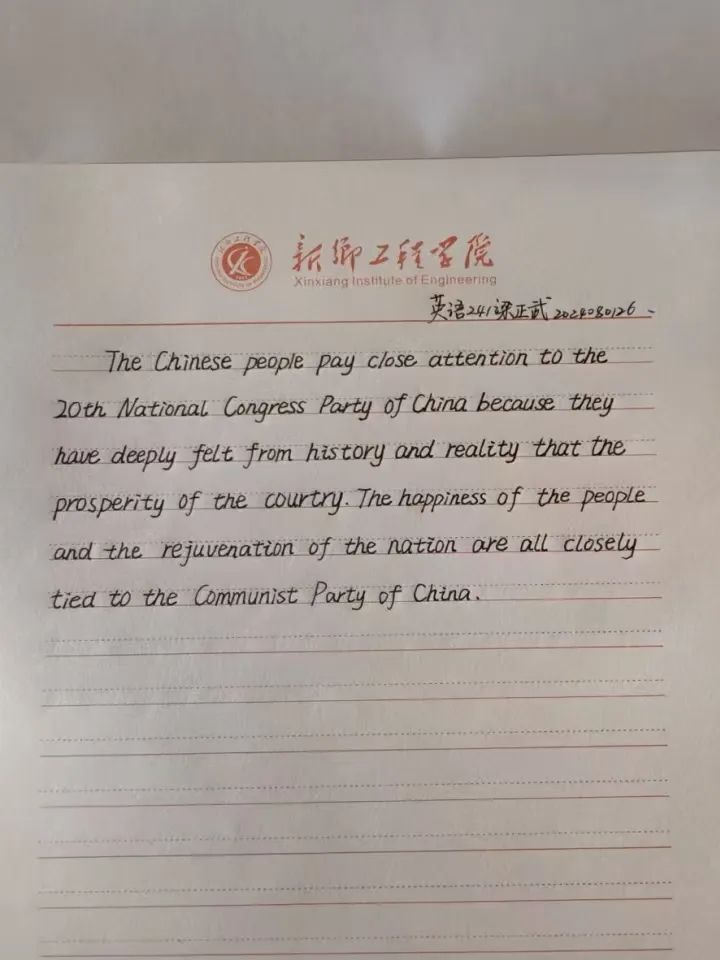 新乡工程学院
Xinxiang Institute of Engineering
英语241梁正武2024080126
The Chinese people pay close attention to the
20th National Congress Party of China because they
have deeply felt from history and reality that the
prosperity of the courtry. The happiness of the people
and the rejuvenation of the nation are all closely
tied to the Communist Party of China.